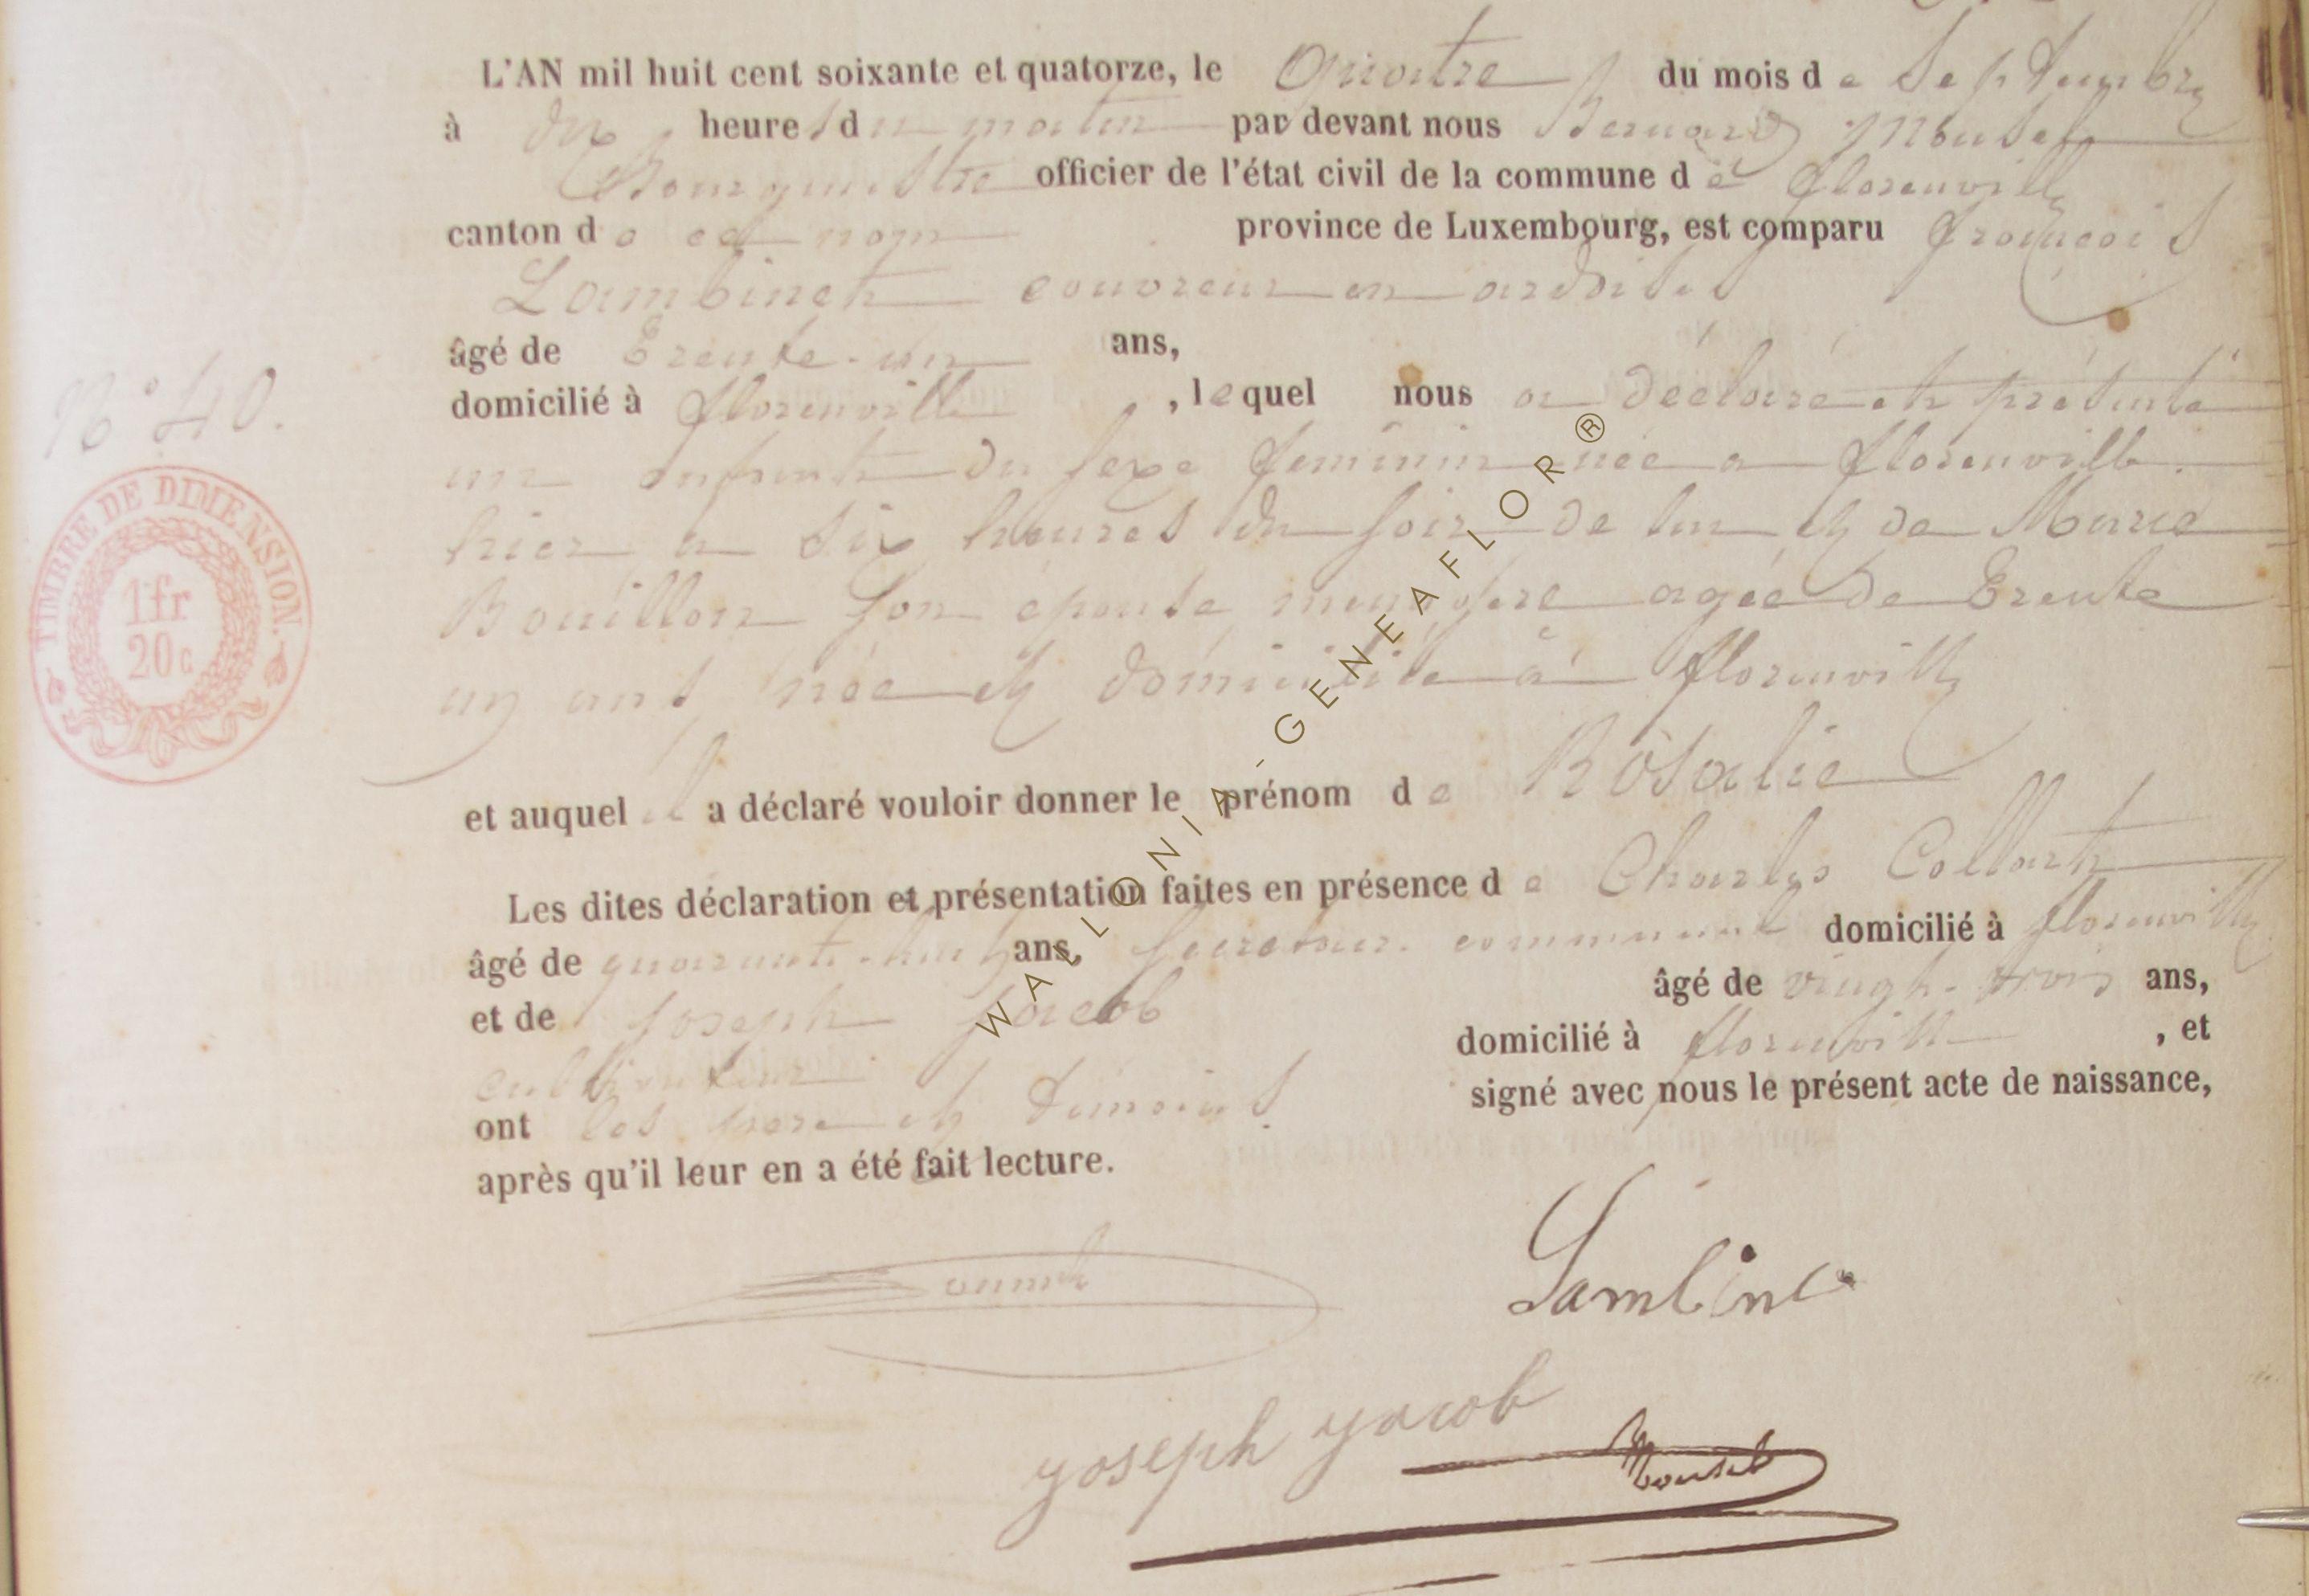 L'AN mil huit cent soixante et quatorze, le Quatre du mois de Septembre
à dix heures du matin par devant nous Bernard Mousel
Bourgmestre officier de l'état civil de la commune de florenville
canton de ce nom province de Luxembourg, est comparu françois
Lambinet couvreur en ardoises
âgé de trente-un ans,
N° 40.
domicilié à florenville, lequel nous a déclaré et présenté
un enfant du sexe feminin née a florenville
hier a six heures du soir de lui et de Marie
Bouillon son épouse menagère agée de trente
un ans née et domiciliée à florenville
et auquel il a déclaré vouloir donner le prénom de Rosalie
Les dites déclaration et présentation faites en présence de Charles Collart
âgé de quarante-huit ans, Secretaire communal domicilié à florenville
et de Joseph Jacob âgé de vingt-trois ans,
cultivateur domicilié à florenville, et
ont les père et témoins signé avec nous le présent acte de naissance,
après qu'il leur en a été fait lecture.
TIMBRE DE DIMENSION.
1fr
20c
Lambinet
yoseph yacob
Mousel
WALLONIA-GENEAFLOR®